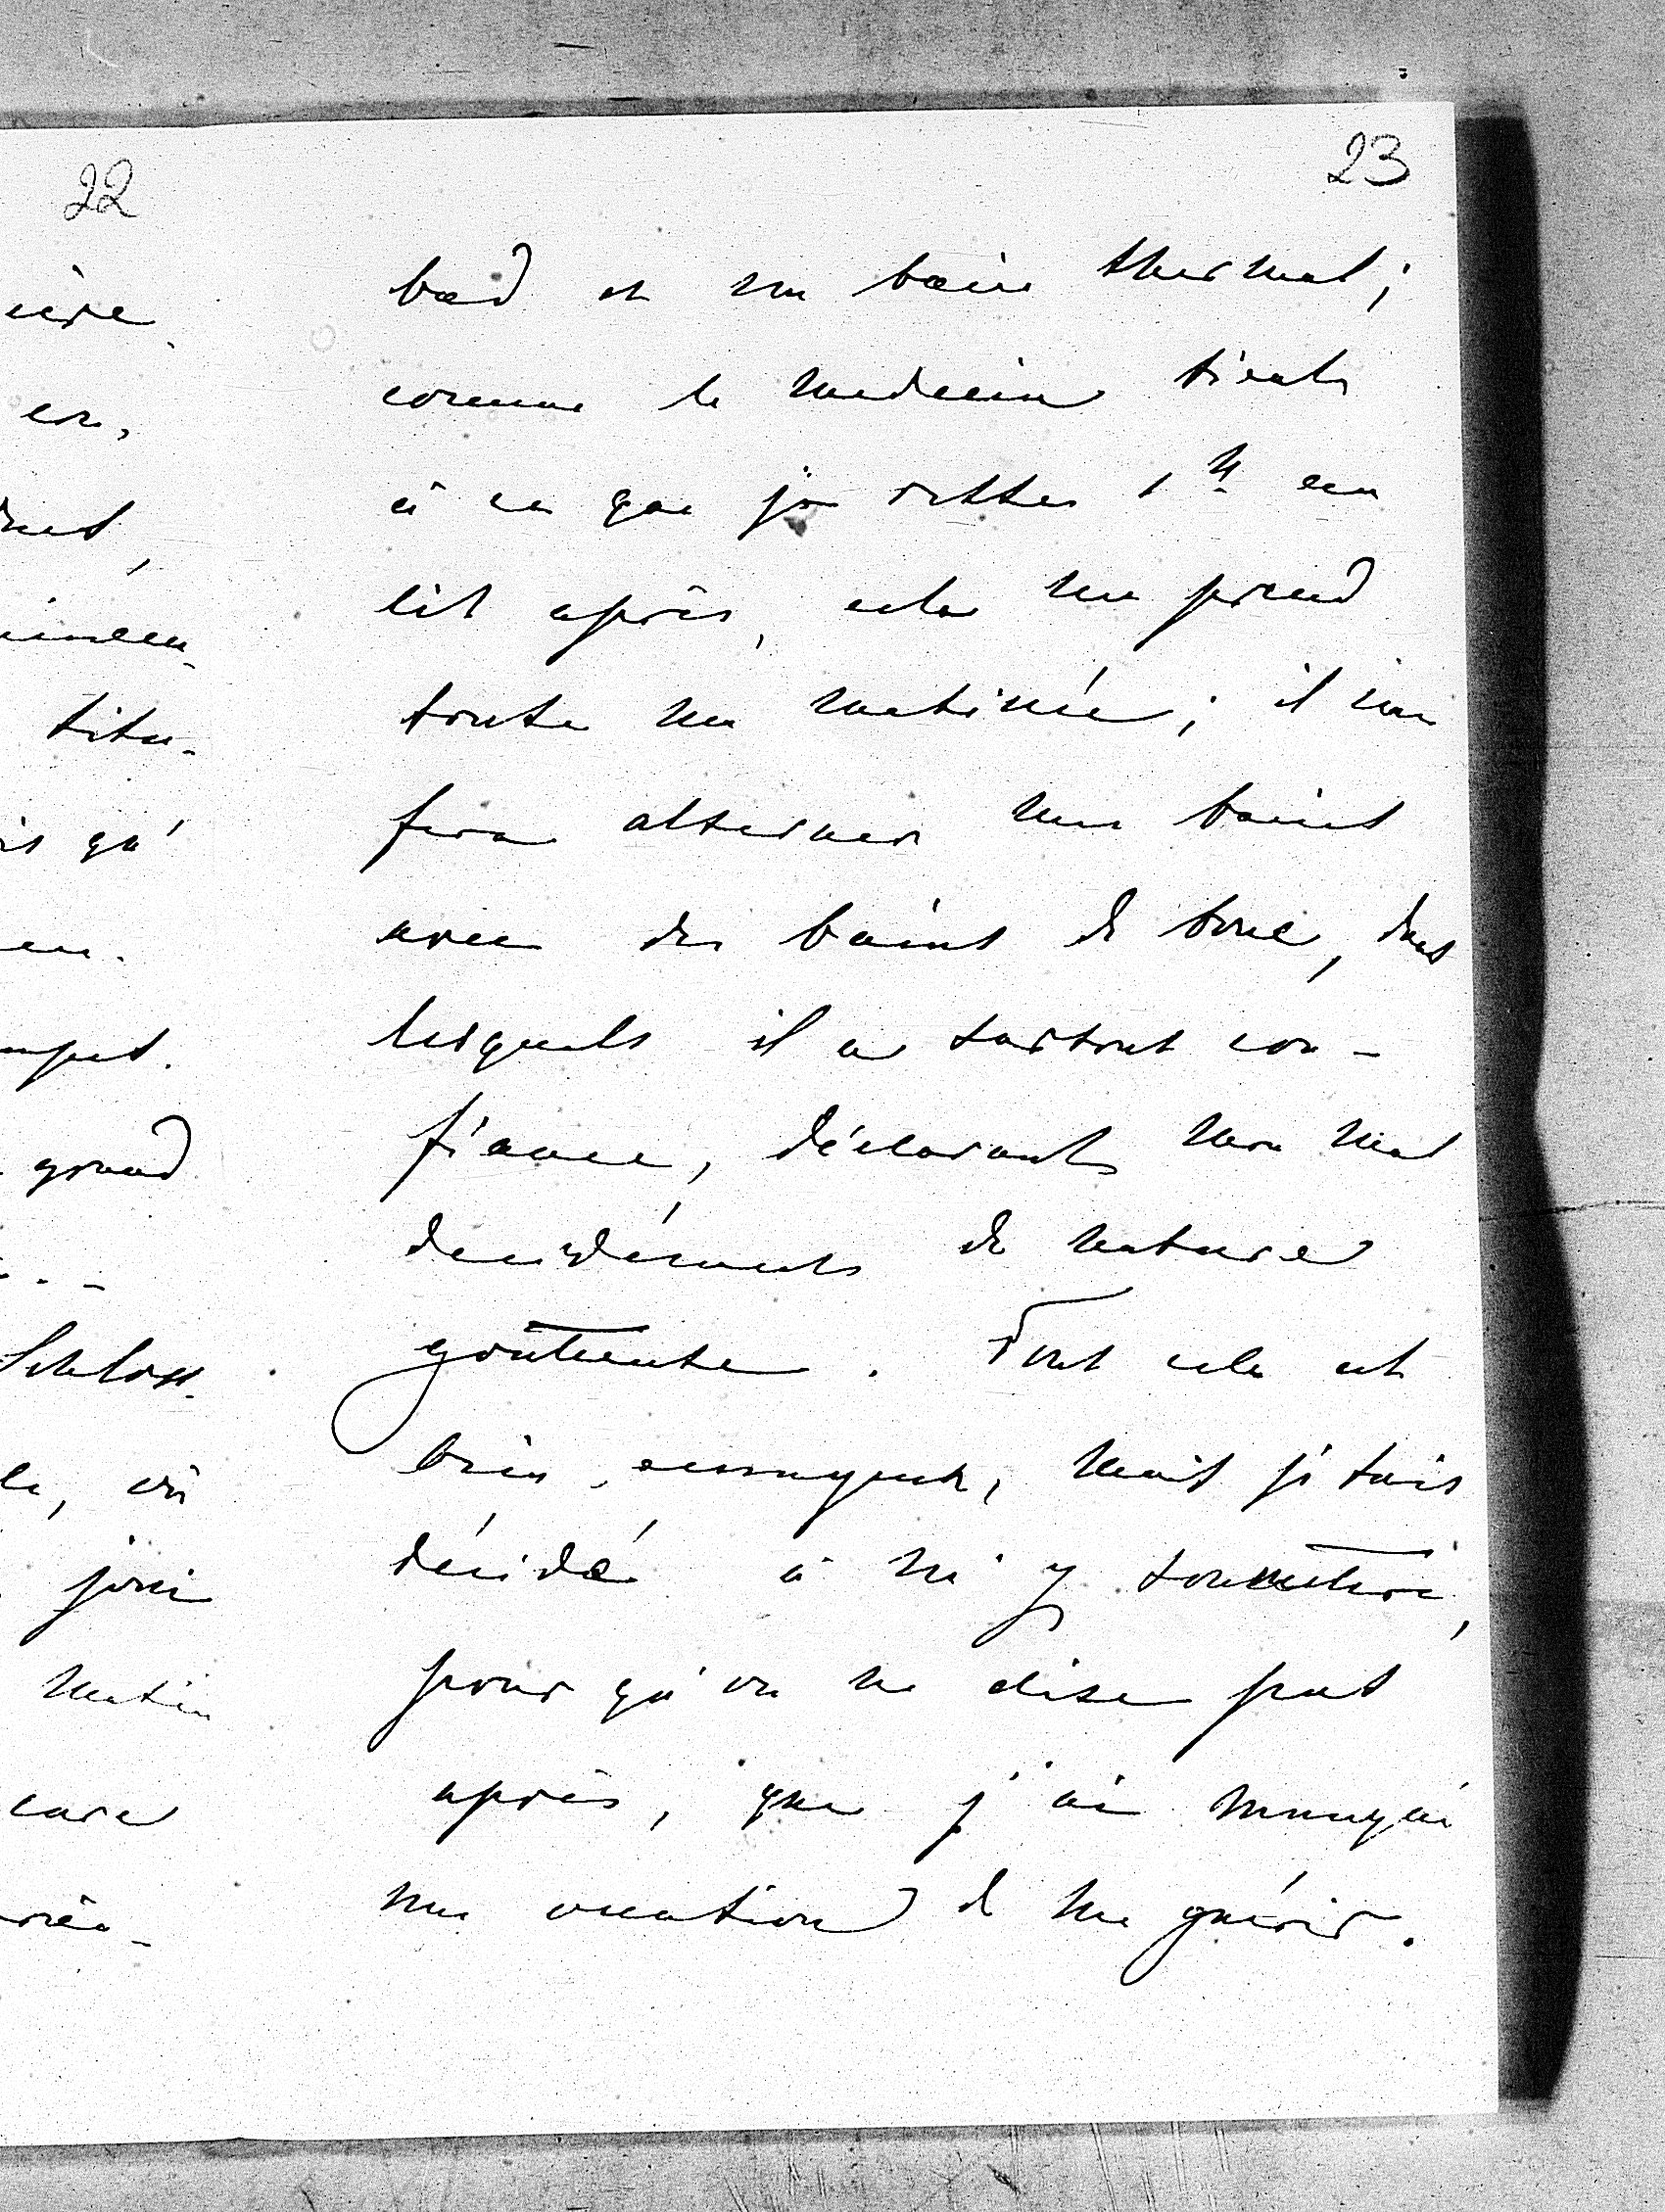 22
ière
en,
titu-
is qu'
en.
grand
...-
Schloss-
le, où
joui
matin
care
23
bad et un bain thermal;
comme le medecin tient
à ce que je reste 1 h. au
lit après, cela me prend
toute ma matinée; il me
fera alterner mes bains
avec des bains de boue, dans
lesquels il a surtout con-
fiance, déclarant mon mal
decidément de nature
goutteuse. Tout cela est
bien ennuyeux, mais j'étais
décidé à m'y soumettre,
pour qu'on ne dise pas
après, que j'ai manqué
une occation de me guérir.